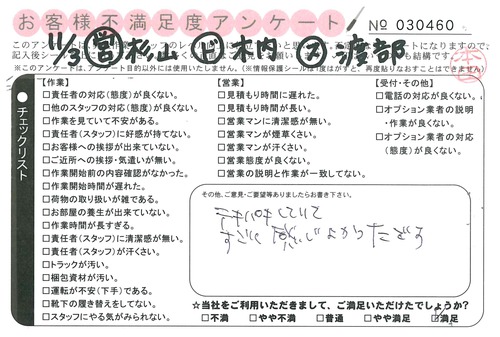 お客様不満足度アンケート
No 030460
11/3 営 杉山 木内 渡部
このアンケートは
記入後シー
も結構です。
このアンケートは、アンケート目的以外には使用いたしません。(※情報保護シールは1度はがすと、再度貼りなおすことはできません)
チェックリスト
【作業】
□責任者の対応(態度)が良くない。
□他のスタッフの対応(態度)が良くない。
□作業を見ていて不安がある。
□責任者(スタッフ)に好感が持てない。
□お客様への挨拶が出来ていない。
□ご近所への挨拶・気遣いが無い。
□作業開始前の内容確認がなかった。
□作業開始時間が遅れた。
□荷物の取り扱いが雑である。
□お部屋の養生が出来ていない。
□作業時間が長すぎる。
□責任者(スタッフ)に清潔感が無い。
□責任者(スタッフ)が汗くさい。
□トラックが汚い。
□梱包資材が汚い。
□運転が不安(下手)である。
□靴下の履き替えをしてない。
□スタッフにやる気がみられない。
【営業】
□見積もり時間に遅れた。
□見積もり時間が長い。
□営業マンに清潔感が無い。
□営業マンが煙草くさい。
□営業マンが汗くさい。
□営業態度が良くない。
□営業の説明と作業が一致してない。
【受付・その他】
□電話の対応が良くない。
□オプション業者の説明
・作業が良くない。
□オプション業者の対応
(態度)が良くない。
その他、ご意見・ご要望等ありましたらお書き下さい。
テキパキしていて
すごく感じよかったです
☆当社をご利用いただきまして、ご満足いただけたでしょうか?
□不満 □やや不満 □普通 □やや満足 □満足